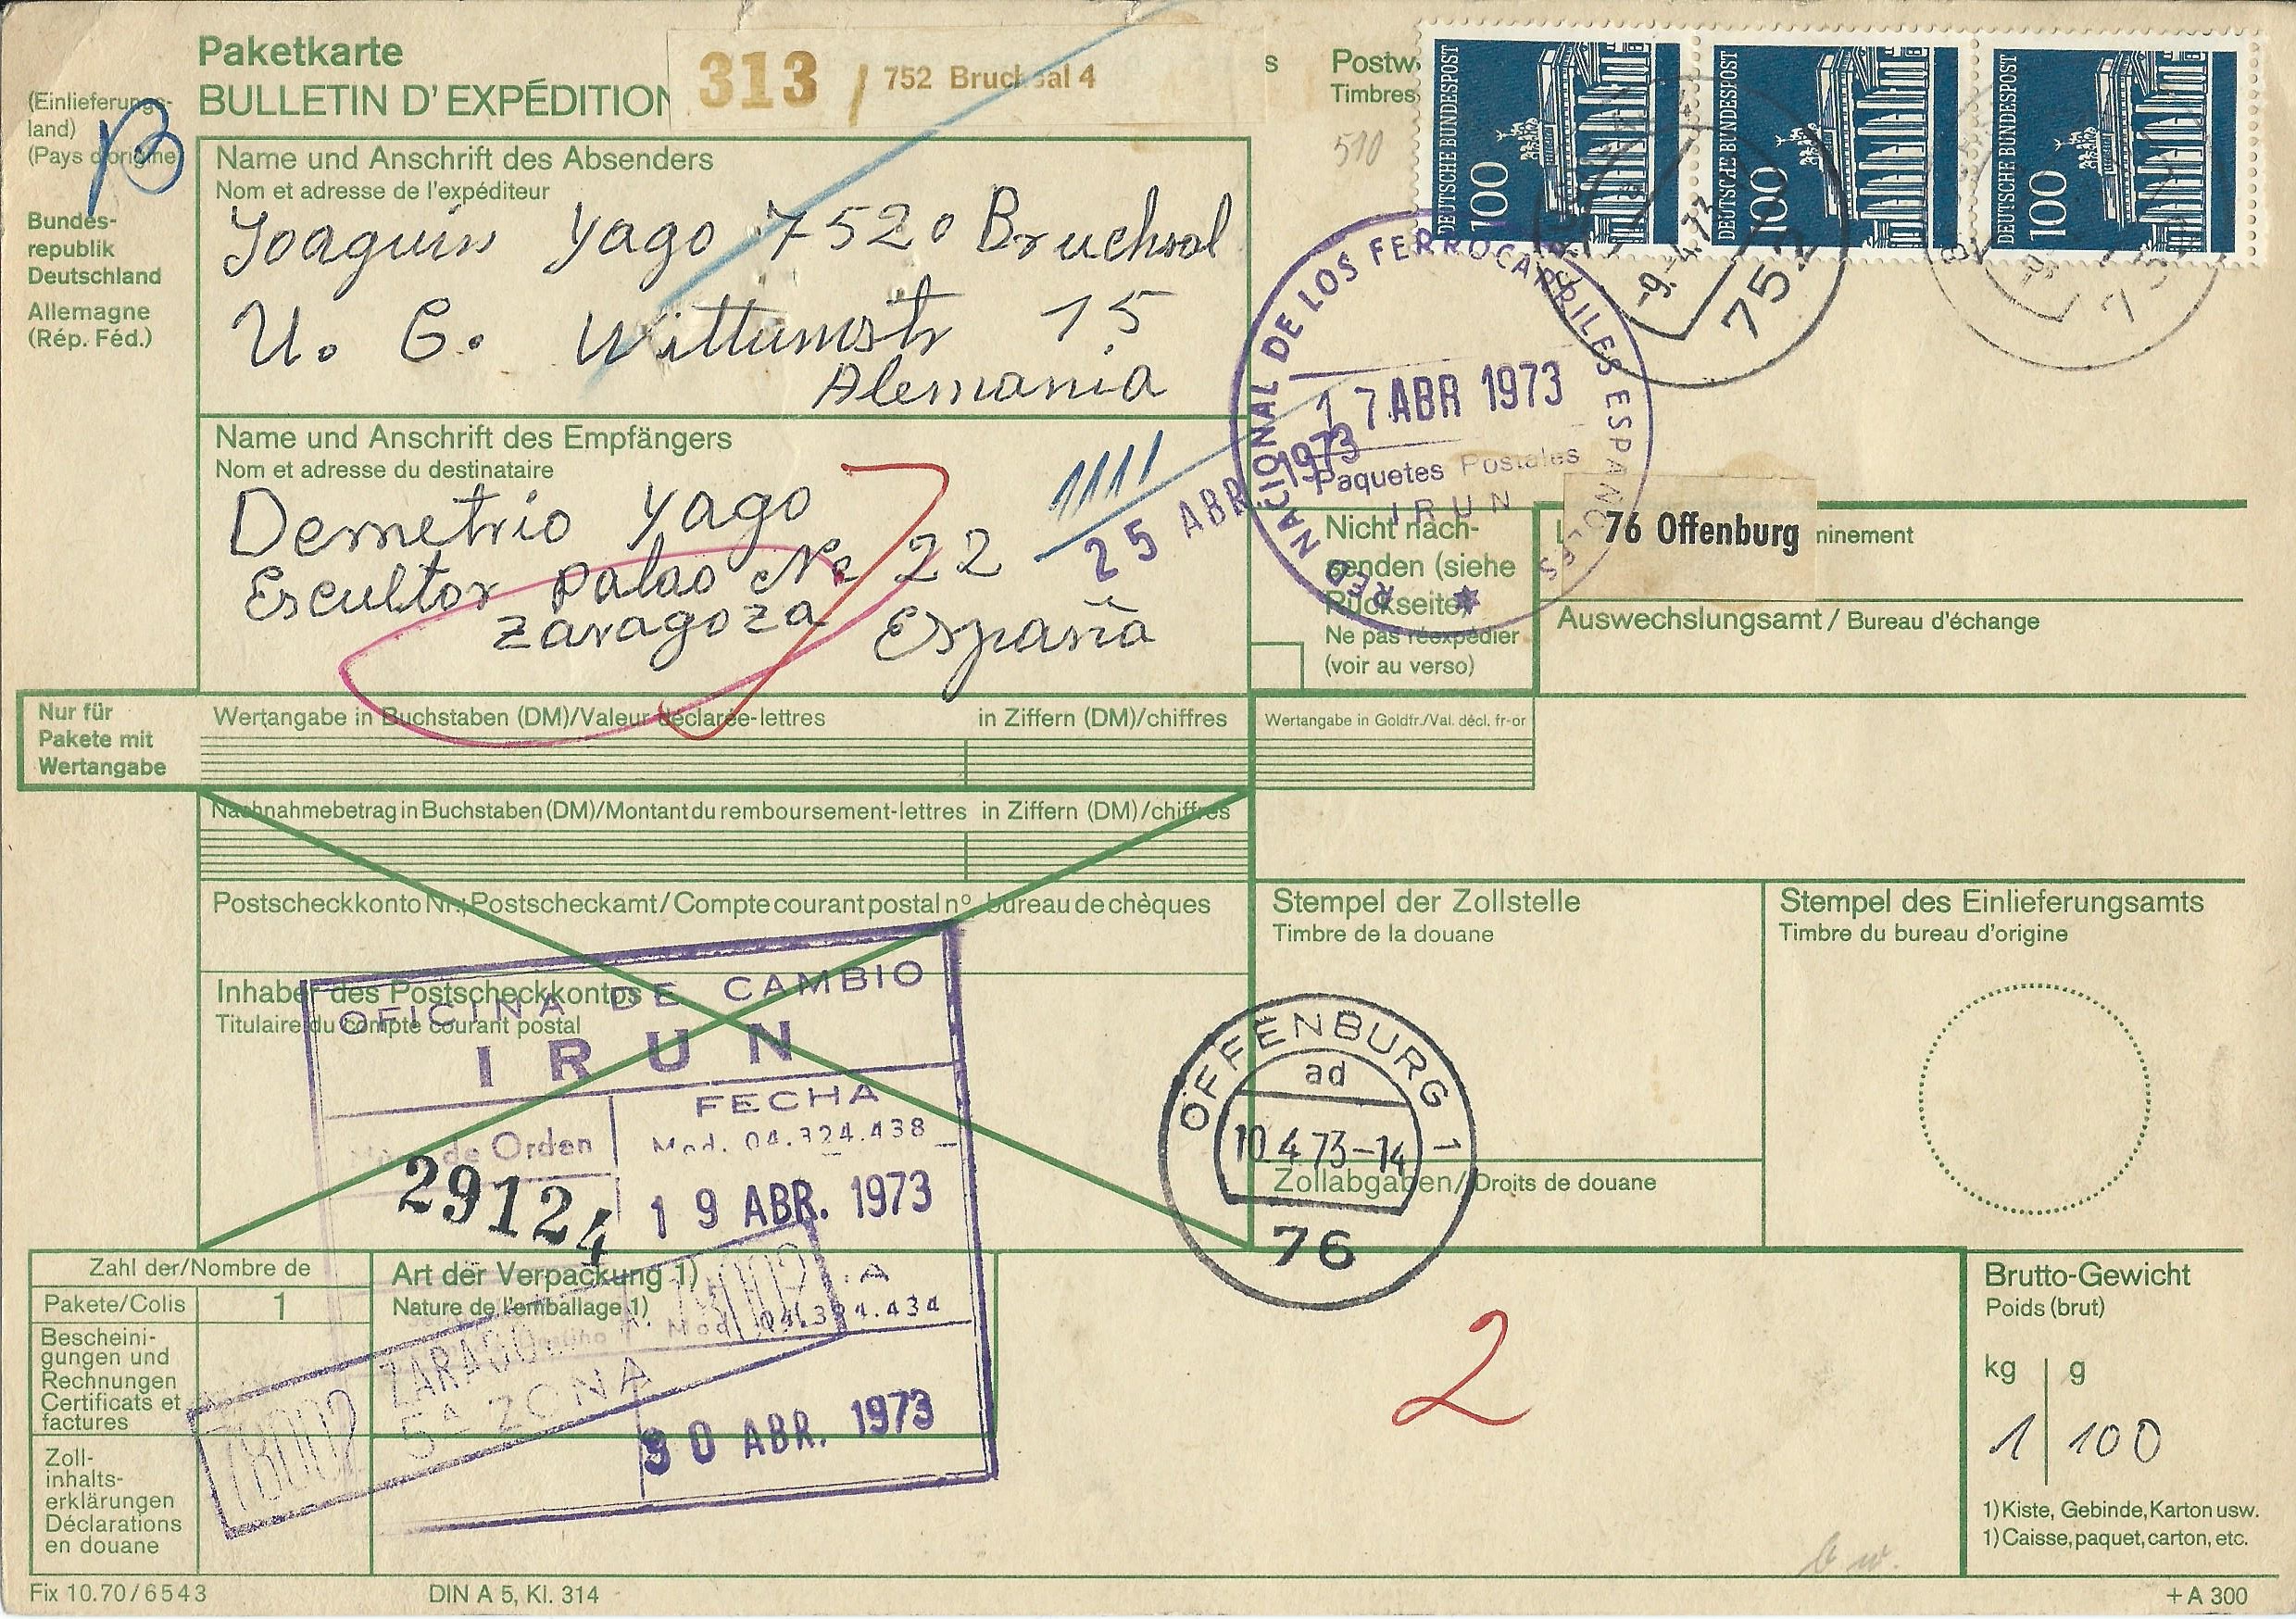 Paketkarte
BULLETIN D'EXPÉDITION
313 / 752 Bruchsal 4
s
Postw
Timbres
510
DEUTSCHE BUNDESPOST 100
DEUTSCHE BUNDESPOST 100
DEUTSCHE BUNDESPOST 100
-9.-4.73
752
(Einlieferungs-
land)
(Pays d'origine)
B
Bundes-
republik
Deutschland
Allemagne
(Rép. Féd.)
Name und Anschrift des Absenders
Nom et adresse de l'expéditeur
Joaquin Yago 7520 Bruchsal
U. G. Wittumstr 15
Alemania
Name und Anschrift des Empfängers
Nom et adresse du destinataire
Demetrio Yago
Escultor Palao Nº 22
Zaragoza España
1111
25 ABR 1973
RED NACIONAL DE LOS FERROCARRILES ESPAÑOLES
17 ABR 1973
Paquetes Postales
IRUN
Nicht nach-
senden (siehe
Rückseite)
Ne pas réexpédier
(voir au verso)
76 Offenburg
minement
Auswechslungsamt / Bureau d'échange
Nur für
Pakete mit
Wertangabe
Wertangabe in Buchstaben (DM)/Valeur déclarée-lettres
in Ziffern (DM)/chiffres
Wertangabe in Goldfr./Val. décl. fr-or
Nachnahmebetrag in Buchstaben (DM)/Montant du remboursement-lettres in Ziffern (DM)/chiffres
Postscheckkonto Nr.; Postscheckamt/Compte courant postal nº bureau de chèques
Inhaber des Postscheckkontos
Titulaire du compte courant postal
OFICINA DE CAMBIO
IRUN
FECHA
de Orden
Mod. 04.324.438
29124
19 ABR. 1973
Mod. 04.324.434
78002 ZARAGO 78002
5ª ZONA
30 ABR. 1973
Stempel der Zollstelle
Timbre de la douane
Stempel des Einlieferungsamts
Timbre du bureau d'origine
OFFENBURG 1
ad
10.4.73-14
76
Zollabgaben/Droits de douane
Zahl der/Nombre de
Pakete/Colis
1
Bescheini-
gungen und
Rechnungen
Certificats et
factures
Zoll-
inhalts-
erklärungen
Déclarations
en douane
Art der Verpackung 1)
Nature de l'emballage 1)
2
Brutto-Gewicht
Poids (brut)
kg g
1 100
1) Kiste, Gebinde, Karton usw.
1) Caisse, paquet, carton, etc.
Fix 10.70/6543
DIN A 5, Kl. 314
+ A 300